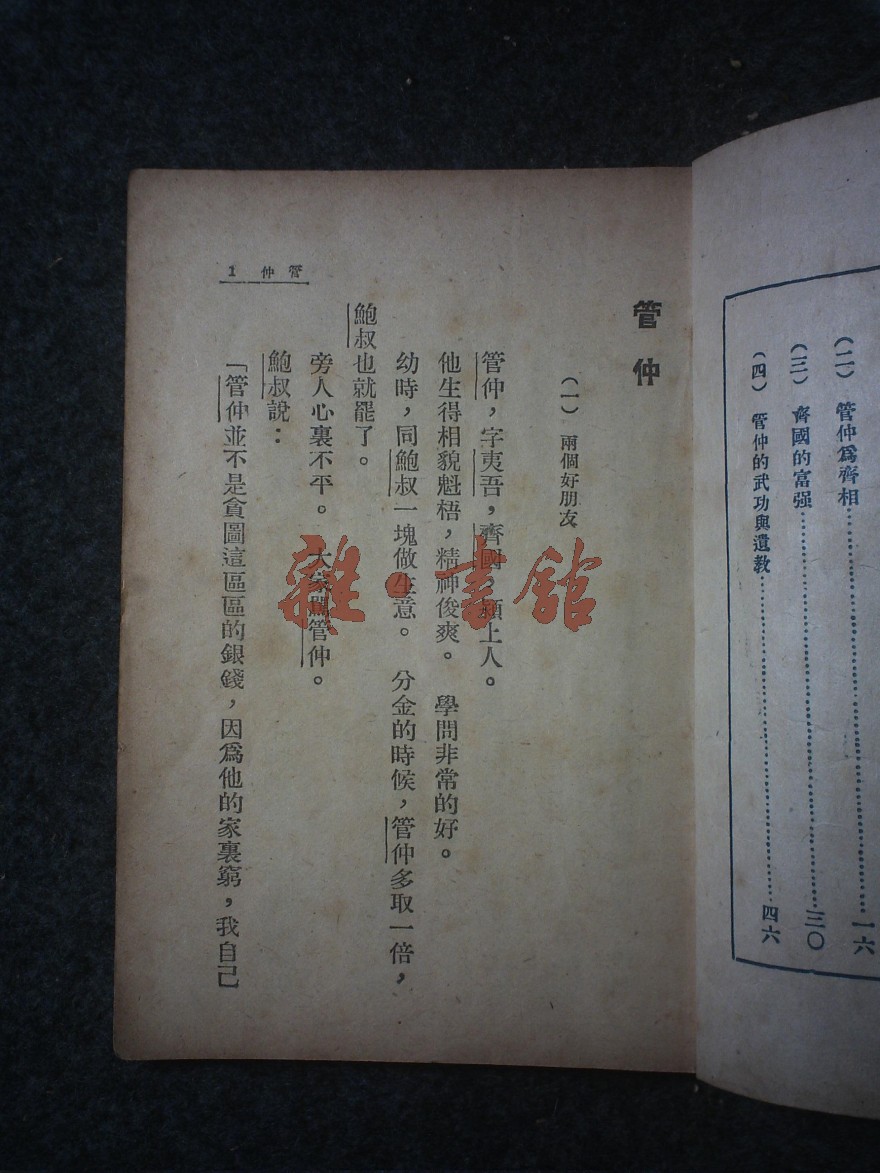 (二) 管仲爲齊相……一六
(三) 齊國的富强……三〇
(四) 管仲的武功與遺教……四六
管仲
(一) 兩個好朋友
管仲，字夷吾，齊國，潁上人。
他生得相貌魁梧，精神俊爽。 學問非常的好。
幼時，同鮑叔一塊做生意。 分金的時候，管仲多取一倍，
鮑叔也就罷了。
旁人心裏不平。 大家駡管仲。
鮑叔說：
「管仲並不是貪圖這區區的銀錢，因爲他的家裏窮，我自己
管仲 1
雜·書館